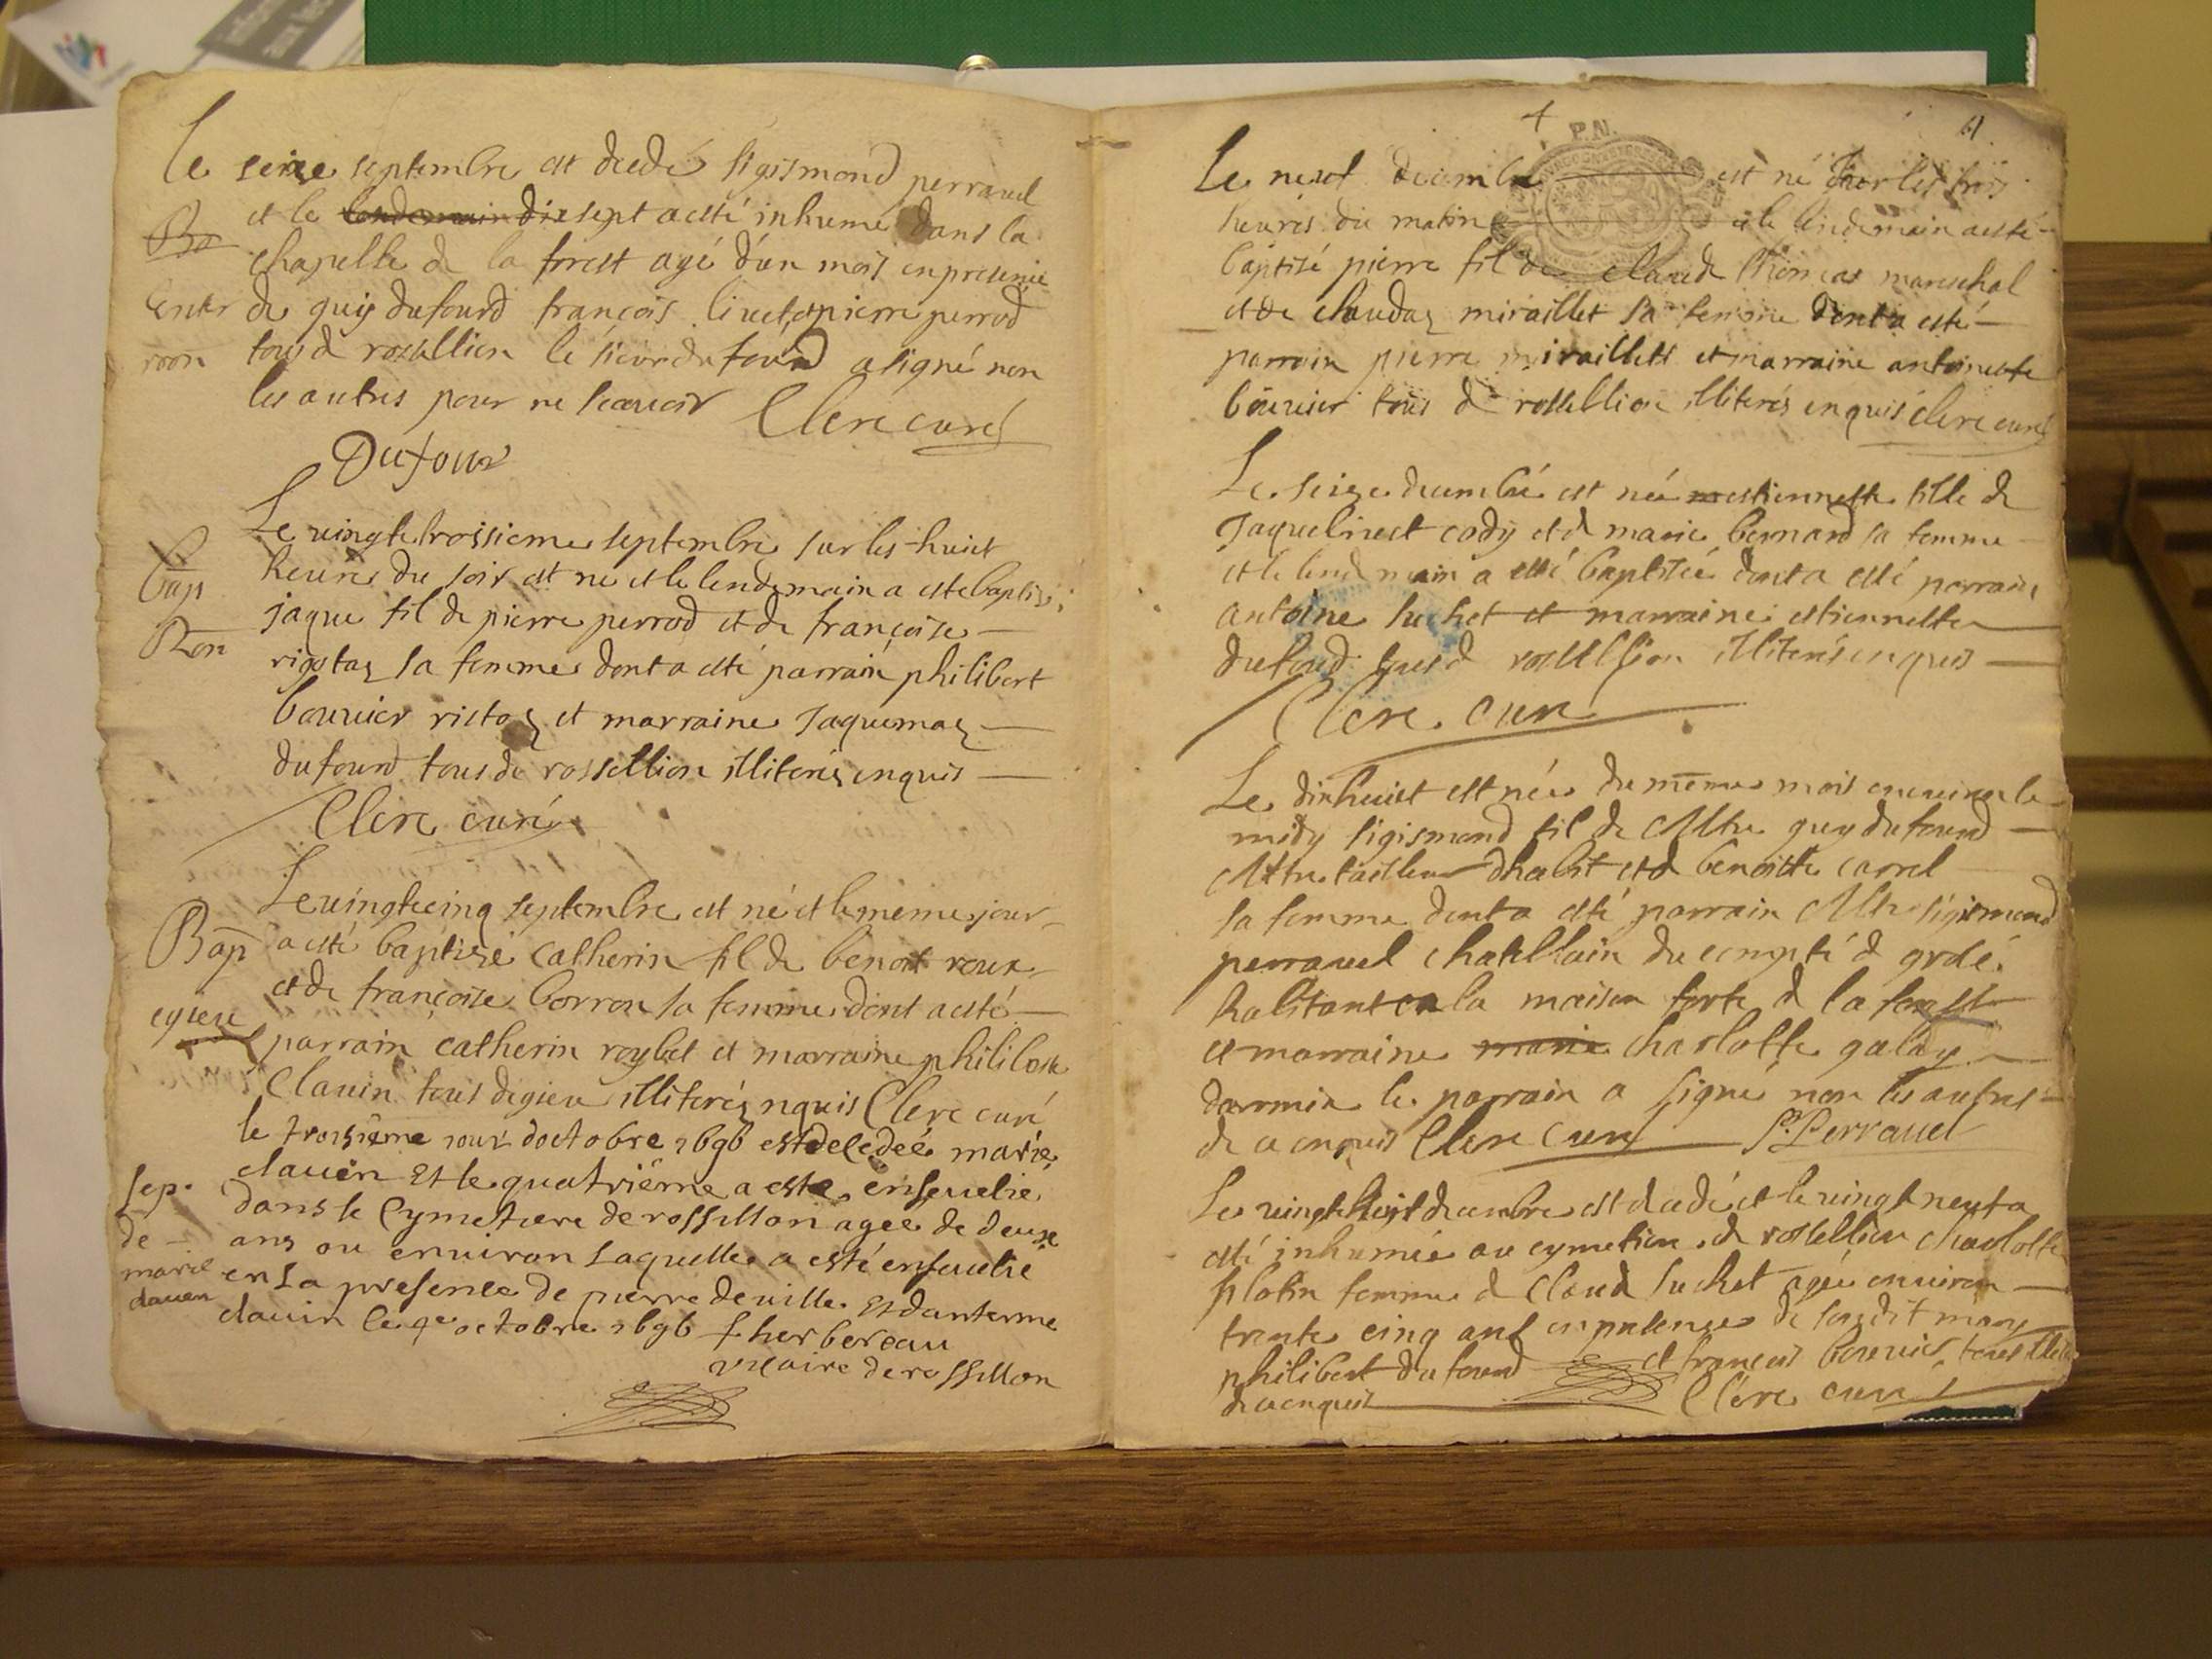 Le seize septembre est decedé sigismond perrauel
et le lendemain dixsept a esté inhumé dans la
Ba
chapelle de la forest agé d'un mois en presence
Enter
de guy dufourd françois liuet et pierre perrod
roon
tous de rossellion le sieur dufourd a signé non
les autres pour ne scauoir Clerc curé
Dufour
Le uingt troisieme septembre sur les huict
heures du soir est né et le lendemain a esté baptisé
Bap
jaque fil de pierre perrod et de françoise
Ron
rigotaz sa femme dont a esté parrain philibert
bouuier et marraine Jaquemaz
dufourd tous de rossellion illiterés enquis
Clerc curé
Le uingtecinq septembre est né et le meme jour
Bap
a esté baptizé Catherin fil de benoit roux
et de françoise borron sa femme dont a esté
eyieu
parrain catherin roybet et marraine philiberte
Clauin tous degieu illiterés nquis Clerc curé
le troisième jour doctobre 1696 est decedeé marie
clauin Et le quatriême a este enseuelie
sep.
dans le Cymetiere de rossillon agee de deux
de
ans ou enuiron laquelle a esté enseuelie
marie
en la presence de pierre deuille Et danterme
clauen
clauin le 4e octobre 1696 f herbereau
vicaire de rossillon
4
P.N.
Le neuf decembre est né sur les trois
heures du matin et le lendemain a esté
baptisé pierre fil de claude thomas mareschal
et de claudaz miraillet sa femme dont a esté
parrain pierre miraillet et marraine antoinette
bouuier tous de rossellion illiterés enquis clerc curé
Le seize decembre est née estiennette fille de
Jaque liuet cody et de marie bernard sa femme
et le lendemain a esté baptisée dont a esté parrain
antoine suchet et marraine estiennette
dufourd tous de rossellion illiterés enquis
Clerc curé
Le dixhuict est né du même mois enuiron le
midy sigismond fil de Mtre guy dufourd
Mtre tailleur dhabit et de benoitte carrel
sa femme dont a esté parrain Mtre sigismond
perrauel chatellain du compté de grolé
habitant en la maison forte de la forest
et marraine marie charlotte galay
darmix le parrain a signé non les autres
de ce enquis Clerc curé S. Perrauel
Le uingthuict decembre est decedé et le uingt neuf a
esté inhumée au cymetiere de rossellion charlotte
femme de Claud suchet agée enuiron
trente cinq ans en presence de sondit mary
philibert dufourd et françois bouuier tous
de ce enquis Clerc curé